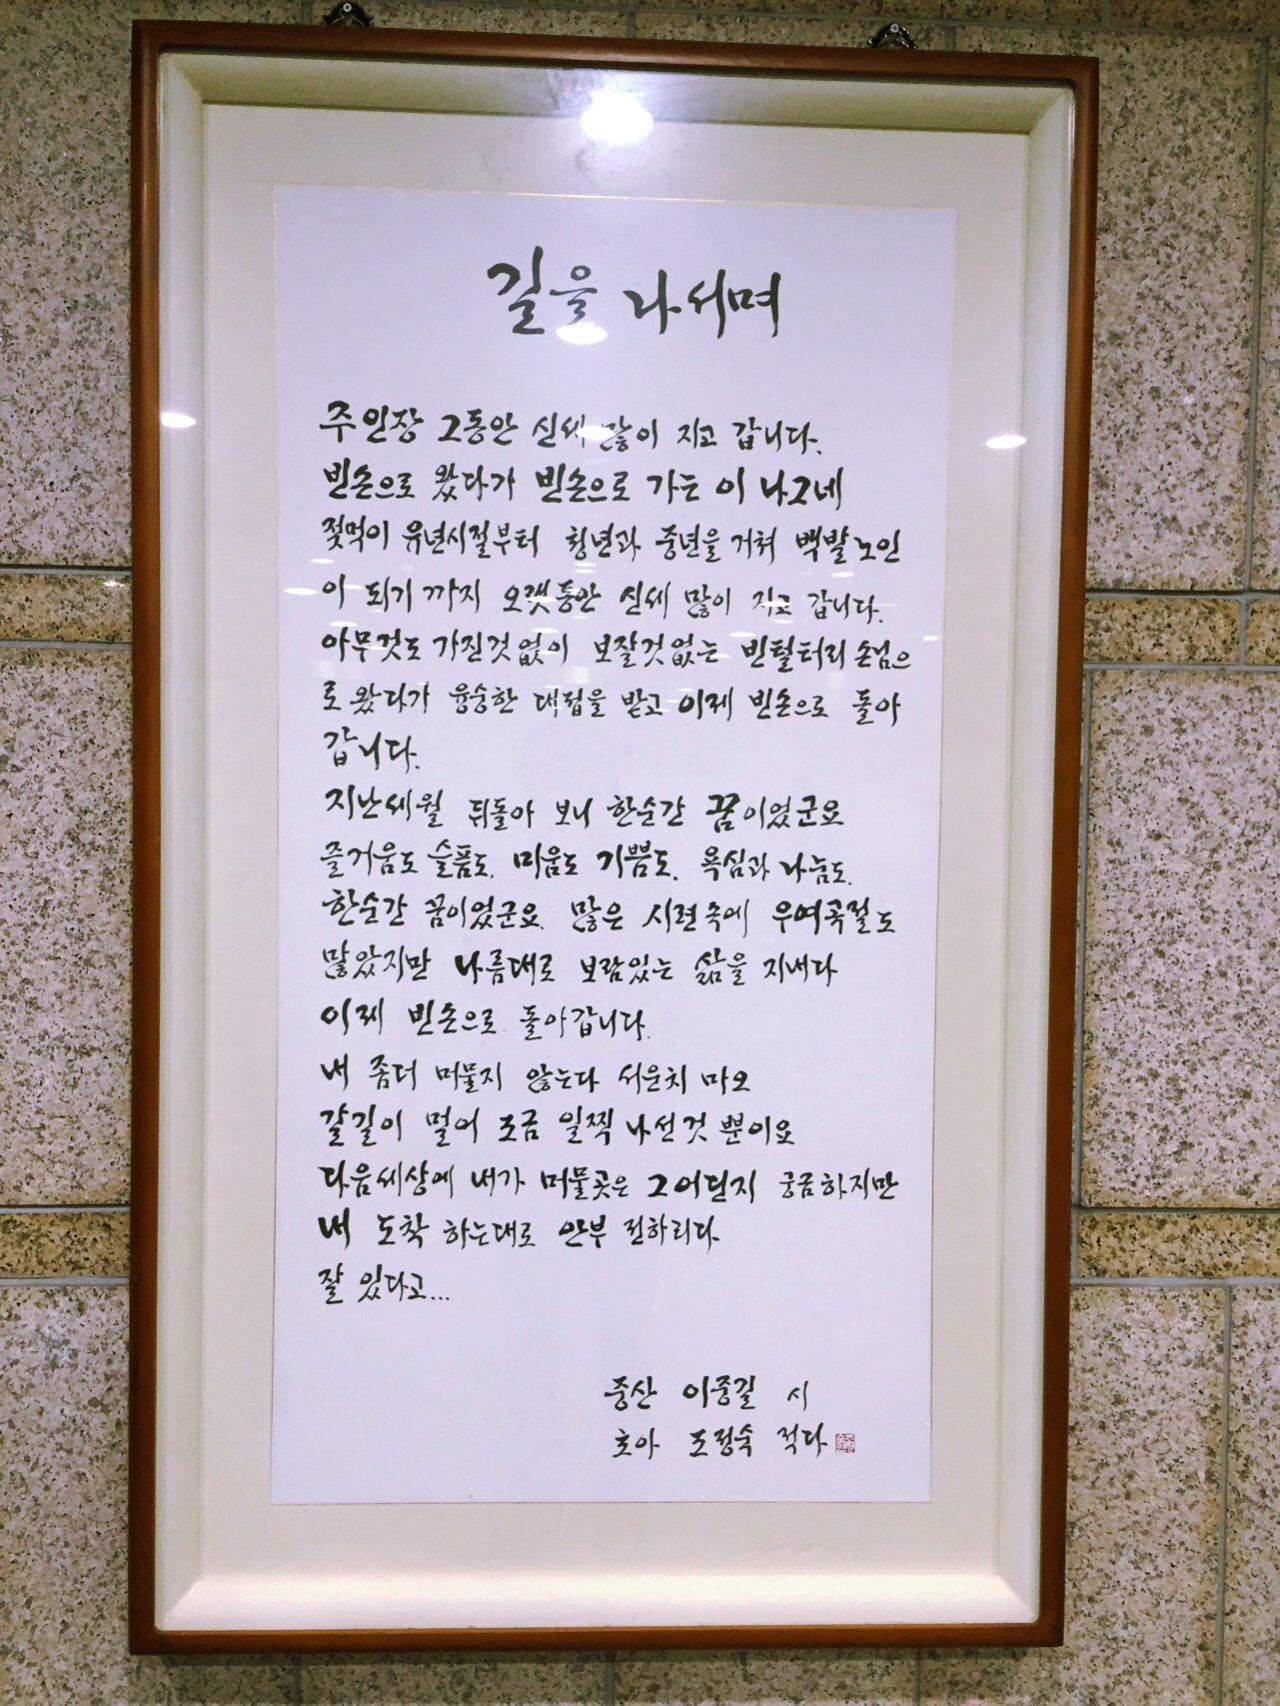 길을 나서며
주인장 그동안 신세 많이 지고 갑니다.
빈손으로 왔다가 빈손으로 가는 이 나그네
젖먹이 유년시절부터 청년과 중년을 거쳐 백발노인
이 되기까지 오랫동안 신세 많이 지고 갑니다.
아무것도 가진것없이 보잘것없는 빈털터리 손님으
로 왔다가 융숭한 대접을 받고 이제 빈손으로 돌아
갑니다.
지난세월 뒤돌아 보니 한순간 꿈이었군요
즐거움도 슬픔도, 미움도 기쁨도, 욕심과 나눔도,
한순간 꿈이었군요. 많은 시련속에 우여곡절도
많았지만 나름대로 보람있는 삶을 지내다
이제 빈손으로 돌아갑니다.
내 좀더 머물지 않는다 서운치 마오
갈길이 멀어 조금 일찍 나선것 뿐이요
다음세상에 내가 머물곳은 그어딘지 궁금하지만
내 도착 하는대로 안부 전하리다
잘 있다고...
중산 이중길 시
호아 조정숙 적다